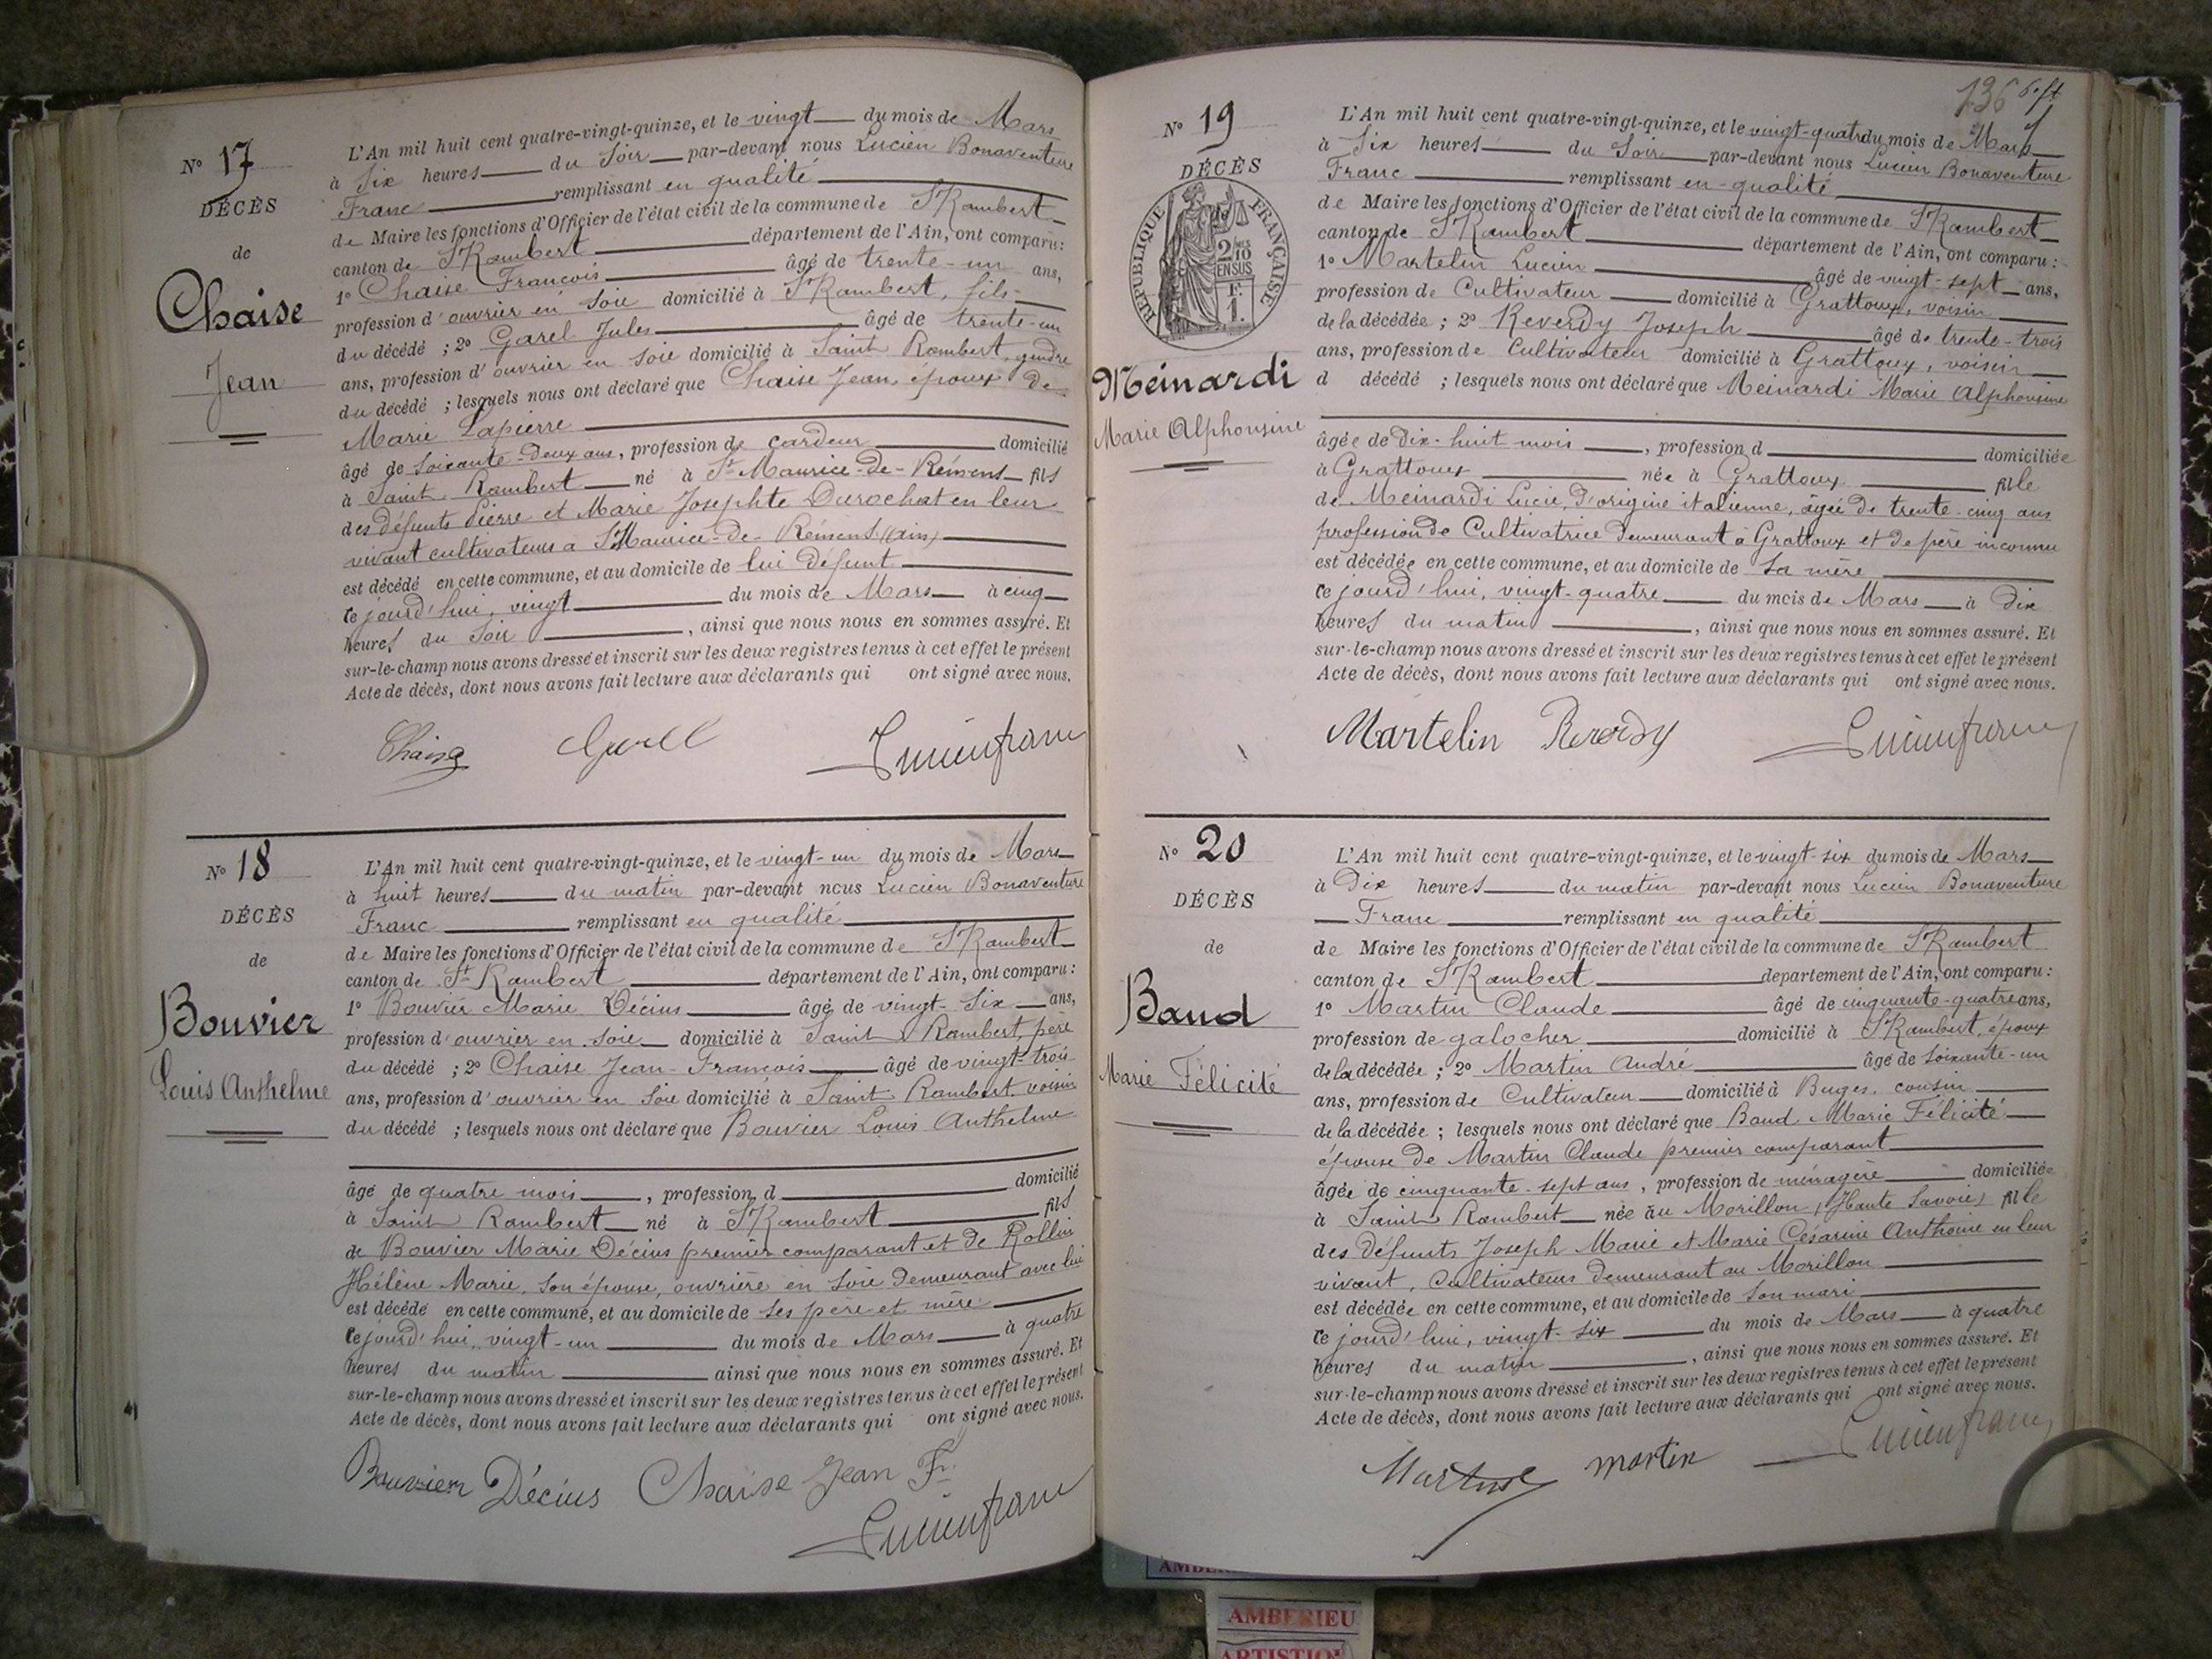 N° 17
DÉCÈS
de
Chaise
Jean
L'An mil huit cent quatre-vingt-quinze, et le vingt du mois de Mars
à Six heures du Soir par-devant nous Lucien Bonaventure
Franc remplissant en qualité
de Maire les fonctions d'Officier de l'état civil de la commune de St Rambert
canton de St Rambert département de l'Ain, ont comparu:
1° Chaise François âgé de trente-un ans,
profession d'ouvrier en soie domicilié à St Rambert, fils
du décédé ; 2° Garel Jules âgé de trente-un
ans, profession d'ouvrier en soie domicilié à Saint Rambert, gendre
du décédé ; lesquels nous ont déclaré que Chaise Jean, époux de
Marie Lapierre
âgé de soixante-deux ans, profession de cardeur domicilié
à Saint Rambert né à St Maurice-de-Rémens fils
des défunts Pierre et Marie Josephte Durochat en leur
vivant cultivateurs à St Maurice-de-Rémens (ain)
est décédé en cette commune, et au domicile de lui défunt
ce jourd'hui, vingt du mois de Mars à cinq
heures du Soir, ainsi que nous nous en sommes assuré. Et
sur-le-champ nous avons dressé et inscrit sur les deux registres tenus à cet effet le présent
Acte de décès, dont nous avons fait lecture aux déclarants qui ont signé avec nous.
Chaise Garel Lucien franc
N° 18
DÉCÈS
de
Bouvier
Louis Anthelme
L'An mil huit cent quatre-vingt-quinze, et le vingt-un du mois de Mars
à huit heures du matin par-devant nous Lucien Bonaventure
Franc remplissant en qualité
de Maire les fonctions d'Officier de l'état civil de la commune de St Rambert
canton de St Rambert département de l'Ain, ont comparu :
1° Bouvier Marie Décius âgé de vingt-six ans,
profession d'ouvrier en soie domicilié à Saint Rambert, père
du décédé ; 2° Chaise Jean-François âgé de vingt-trois
ans, profession d'ouvrier en soie domicilié à Saint Rambert, voisin
du décédé ; lesquels nous ont déclaré que Bouvier Louis Anthelme
âgé de quatre mois, profession d domicilié
à Saint Rambert né à St Rambert fils
de Bouvier Marie Décius premier comparant et de Rollin
Hélène Marie, son épouse, ouvrière en soie demeurant avec lui
est décédé en cette commune, et au domicile de ses père et mère
ce jourd'hui, vingt-un du mois de Mars à quatre
heures du matin ainsi que nous nous en sommes assuré. Et
sur-le-champ nous avons dressé et inscrit sur les deux registres tenus à cet effet le présent
Acte de décès, dont nous avons fait lecture aux déclarants qui ont signé avec nous.
Bouvier Décius Chaise Jean Fr.
Lucien franc
136
N° 19
DÉCÈS
de
RÉPUBLIQUE FRANÇAISE
2/10 EN SUS
F. 1.
Meinardi
Marie Alphonsine
L'An mil huit cent quatre-vingt-quinze, et le vingt-quatre du mois de Mars
à Six heures du Soir par-devant nous Lucien Bonaventure
Franc remplissant en qualité
de Maire les fonctions d'Officier de l'état civil de la commune de St Rambert
canton de St Rambert département de l'Ain, ont comparu :
1° Martelin Lucien âgé de vingt-sept ans,
profession de Cultivateur domicilié à Grattoux, voisin
de la décédée ; 2° Reverdy Joseph âgé de trente-trois
ans, profession de Cultivateur domicilié à Grattoux, voisin
d décédé ; lesquels nous ont déclaré que Meinardi Marie Alphonsine
âgée de Dix-huit mois, profession d domiciliée
à Grattoux née à Grattoux fille
de Meinardi Lucie, d'origine italienne, âgée de trente-cinq ans
profession de Cultivatrice demeurant à Grattoux et de père inconnu
est décédée en cette commune, et au domicile de Sa mère
ce jourd'hui, vingt-quatre du mois de Mars à Dix
heures du matin, ainsi que nous nous en sommes assuré. Et
sur-le-champ nous avons dressé et inscrit sur les deux registres tenus à cet effet le présent
Acte de décès, dont nous avons fait lecture aux déclarants qui ont signé avec nous.
Martelin Reverdy Lucien franc
N° 20
DÉCÈS
de
Baud
Marie Félicité
L'An mil huit cent quatre-vingt-quinze, et le vingt-six du mois de Mars
à Dix heures du matin par-devant nous Lucien Bonaventure
Franc remplissant en qualité
de Maire les fonctions d'Officier de l'état civil de la commune de St Rambert
canton de St Rambert département de l'Ain, ont comparu :
1° Martin Claude âgé de cinquante-quatre ans,
profession de galocher domicilié à St Rambert, époux
de la décédée ; 2° Martin André âgé de soixante-un
ans, profession de Cultivateur domicilié à Buges, cousin
de la décédée ; lesquels nous ont déclaré que Baud Marie Félicité
épouse de Martin Claude premier comparant
âgée de cinquante-sept ans, profession de ménagère domiciliée
à Saint Rambert née au Morillon (Haute Savoie) fille
des défunts Joseph Marie et Marie Césarine Anthoine en leur
vivant, Cultivateurs demeurant au Morillon
est décédée en cette commune, et au domicile de Son mari
ce jourd'hui, vingt-six du mois de Mars à quatre
heures du matin, ainsi que nous nous en sommes assuré. Et
sur-le-champ nous avons dressé et inscrit sur les deux registres tenus à cet effet le présent
Acte de décès, dont nous avons fait lecture aux déclarants qui ont signé avec nous.
Martin martin Lucien franc
AMBERIEU